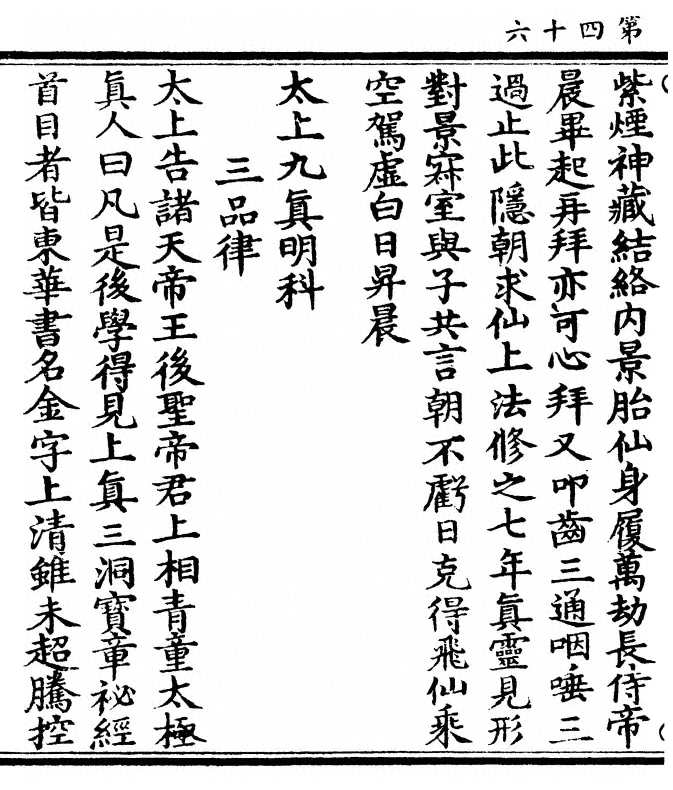 第四十六
紫煙神藏結絡内景胎仙身履萬劫長侍帝
晨畢起再拜亦可心拜又叩齒三通咽唾三
過止此隱朝求仙上法修之七年眞靈見形
對景寢室與子共言朝不虧日克得飛仙乘
空駕虛白日昇晨
太上九眞明科
三品律
太上告諸天帝王後聖帝君上相青童太極
眞人曰凡是後學得見上眞三洞寶章祕經
首目者皆東華書名金字上清雖未超騰控